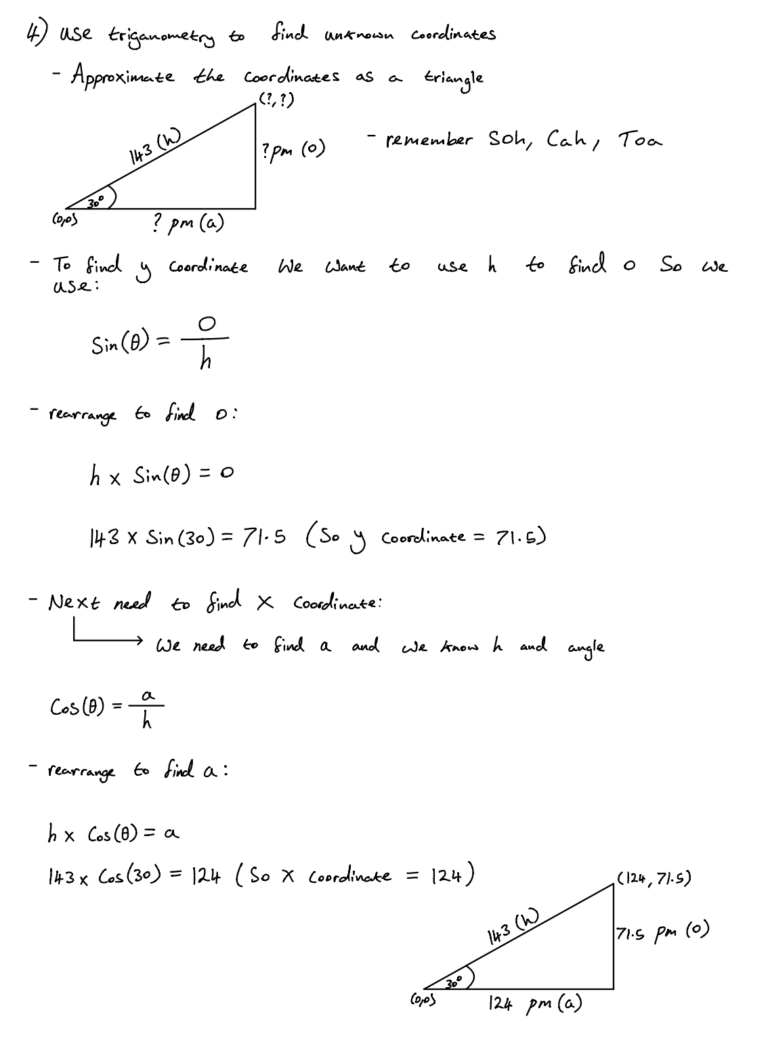 4) use triganometry to find unknown coordinates
- Approximate the coordinates as a triangle
(?,?)
143 (h)
? pm (o)
- remember Soh, Cah, Toa
30°
(0,0)
? pm (a)
- To find y coordinate we want to use h to find o So we
use:
Sin(θ) = o/h
- rearrange to find o:
h x Sin(θ) = o
143 x Sin(30) = 71.5 (So y coordinate = 71.5)
- Next need to find x coordinate:
We need to find a and we know h and angle
Cos(θ) = a/h
- rearrange to find a:
h x Cos(θ) = a
143 x Cos(30) = 124 (So x coordinate = 124)
(124, 71.5)
143 (h)
71.5 pm (o)
30°
(0,0)
124 pm (a)